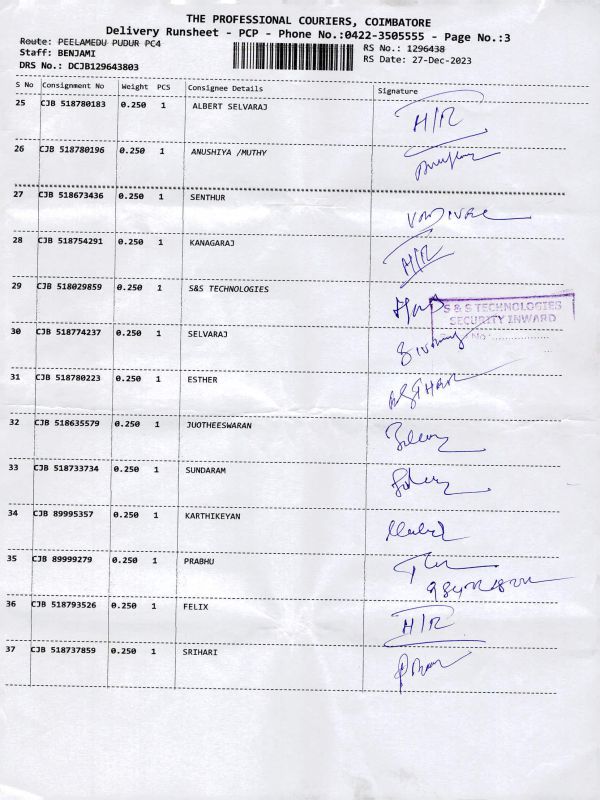 THE PROFESSIONAL COURIERS, COIMBATORE
Delivery Runsheet - PCP - Phone No.:0422-3505555 - Page No.:3
Route: PEELAMEDU PUDUR PC4
Staff: BENJAMI
DRS No.: DCJB129643803
RS No.: 1296438
RS Date: 27-Dec-2023
S No Consignment No Weight PCS Consignee Details Signature
25 CJB 518780183 0.250 1 ALBERT SELVARAJ H/R
26 CJB 518780196 0.250 1 ANUSHIYA /MUTHY
27 CJB 518673436 0.250 1 SENTHUR
28 CJB 518754291 0.250 1 KANAGARAJ H/R
29 CJB 518029859 0.250 1 S&S TECHNOLOGIES
S & S TECHNOLOGIES
SECURITY INWARD
30 CJB 518774237 0.250 1 SELVARAJ
31 CJB 518780223 0.250 1 ESTHER
32 CJB 518635579 0.250 1 JUOTHEESWARAN
33 CJB 518733734 0.250 1 SUNDARAM
34 CJB 89995357 0.250 1 KARTHIKEYAN
35 CJB 89999279 0.250 1 PRABHU
36 CJB 518793526 0.250 1 FELIX H/R
37 CJB 518737859 0.250 1 SRIHARI